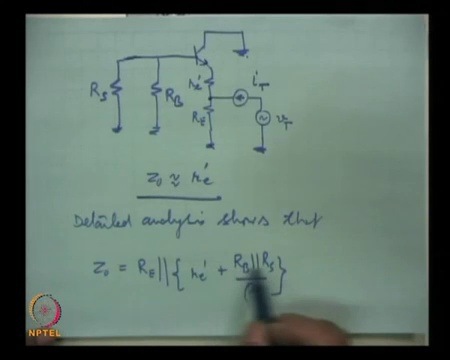 R_S
R_B
r_e'
R_E
i_T
v_T
z_0 ≈ r_e'
Detailed analysis shows that
z_0 = R_E || { r_e' + R_B||R_S / }
NPTEL